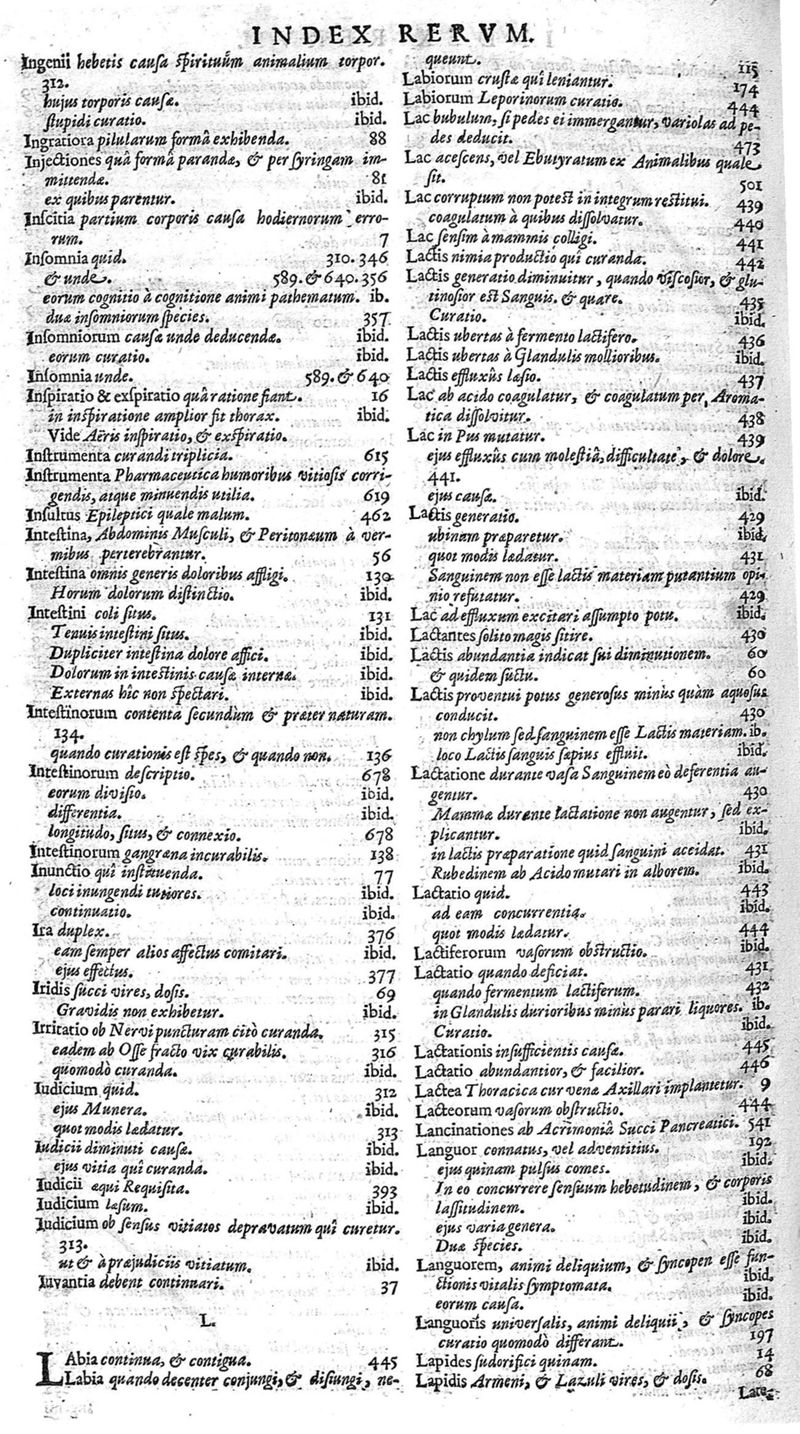 INDEX RERUM.
Ingenii hebetis causa spirituũm animalium torpor.
312.
hujus torporis causæ. ibid.
stupidi curatio. ibid.
Ingratiora pilularum formâ exhibenda. 88
Injectiones quâ formâ parandæ, & per syringam im-
mittendæ. 81
ex quibus parentur. ibid.
Inscitia partium corporis causa hodiernorum erro-
rum. 7
Insomnia quid. 310.346
& unde. 589.&640.356
eorum cognitio à cognitione animi pathematum. ib.
duæ insomniorum species. 357
Insomniorum causæ unde deducendæ. ibid.
eorum curatio. ibid.
Insomnia unde. 589.&640
Inspiratio & exspiratio quâ ratione fiant. 16
in inspiratione amplior fit thorax. ibid.
Vide Aëris inspiratio, & exspiratio.
Instrumenta curandi triplicia. 615
Instrumenta Pharmaceutica humoribus vitiosis corri-
gendis, atque minuendis utilia. 619
Insultus Epileptici quale malum. 462
Intestina, Abdominis Musculi, & Peritonæum à ver-
mibus perterebrantur. 56
Intestina omnis generis doloribus affligi. 130
Horum dolorum distinctio. ibid.
Intestini coli situs. 131
Tenuis intestini situs. ibid.
Dupliciter intestina dolore affici. ibid.
Dolorum in intestinis causæ internæ. ibid.
Externas hîc non spectari. ibid.
Intestinorum contenta secundùm & præter naturam.
134.
quando curationis est spes, & quando non. 136
Intestinorum descriptio. 678
eorum divisio. ibid.
differentia. ibid.
longitudo, situs, & connexio. 678
Intestinorum gangræna incurabilis. 138
Inunctio quî instituenda. 77
loci inungendi tutiores. ibid.
continuatio. ibid.
Ira duplex. 376
eam semper alios affectus comitari. ibid.
ejus effectus. 377
Iridis succi vires, dosis. 69
Gravidis non exhibetur. ibid.
Irritatio ob Nervi puncturam citò curanda. 315
eadem ab Osse fracto vix curabilis. 316
quomodò curanda. ibid.
Iudicium quid. 312
ejus Munera. ibid.
quot modis lædatur. 313
Iudicii diminuti causæ. ibid.
ejus vitia qui curanda. ibid.
Iudicii æqui Requisita. 393
Iudicium læsum. ibid.
Iudicium ob sensus vitiatos depravatum quî curetur.
313.
ut & à præjudiciis vitiatum. ibid.
Iuvantia debent continuari. 37
L.
LAbia continua, & contigua. 445
Labia quando decenter conjungi, & disiungi, ne-
queunt. 115
Labiorum crustæ quî leniantur. 174
Labiorum Leporinorum curatio. 444
Lac bubulum, si pedes ei immergantur, variolas ad pe-
des deducit. 473
Lac acescens, vel Ebutyratum ex Animalibus quale
sit. 501
Lac corruptum non potest in integrum restitui. 439
coagulatum à quibus dissolvatur. 440
Lac sensim à mammis colligi. 441
Lactis nimia productio qui curanda. 442
Lactis generatio diminuitur, quando viscosior, & glu-
tinosior est Sanguis. & quare. 435
Curatio. ibid.
Lactis ubertas à fermento lactifero. 436
Lactis ubertas à Glandulis mollioribus. ibid.
Lactis effluxûs læsio. 437
Lac ab acido coagulatur, & coagulatum per Aroma-
tica dissolvitur. 438
Lac in Pus mutatur. 439
ejus effluxûs cum molestiâ, difficultate, & dolore.
441.
ejus causæ. ibid.
Lactis generatio. 429
ubinam præparetur. ibid.
quot modis lædatur. 431
Sanguinem non esse lactis materiam putantium opi-
nio refutatur. 429
Lac ad effluxum excitari assumpto potu. ibid.
Lactantes solito magis sitire. 430
Lactis abundantia indicat sui diminutionem. 60
& quidem suctu. 60
Lactis proventui potus generosus minùs quàm aquosus
conducit. 430
non chylum sed sanguinem esse Lactis materiam. ib.
loco Lactis sanguis sæpius effluit. ibid.
Lactatione durante vasa Sanguinem eò deferentia au-
gentur. 430
Mammæ durante lactatione non augentur, sed ex-
plicantur. ibid.
in lactis præparatione quid sanguini accidat. 431
Rubedinem ab Acido mutari in alborem. ibid.
Lactatio quid. 443
ad eam concurrentia. ibid.
quot modis lædatur. 444
Lactiferorum vasorum obstructio. ibid.
Lactatio quando deficiat. 431
quando fermentum lactiferum. 432
in Glandulis durioribus minùs parari liquores. ib.
Curatio. ibid.
Lactationis insufficientis causæ. 445
Lactatio abundantior, & facilior. 446
Lactea Thoracica cur venæ Axillari implantetur. 9
Lacteorum vasorum obstructio. 444
Lancinationes ab Acrimoniâ Succi Pancreatici. 541
Languor connatus, vel adventitius. 192
ejus quinam pulsus comes. ibid.
In eo concurrere sensuum hebetudinem, & corporis
lassitudinem. ibid.
ejus varia genera. ibid.
Duæ species. ibid.
Languorem, animi deliquium, & syncopen esse fun-
ctionis vitalis symptomata. ibid.
eorum causa. ibid.
Languoris universalis, animi deliquii, & syncopes
curatio quomodò differant. 197
Lapides sudorifici quinam. 14
Lapidis Armeni, & Lazuli vires, & dosis. 68
Late-